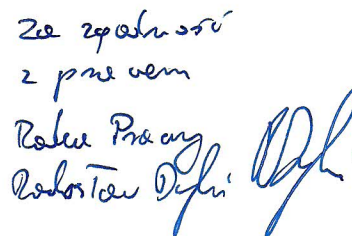 Za zgodność
z prawem
Radca Prawny
Radosław